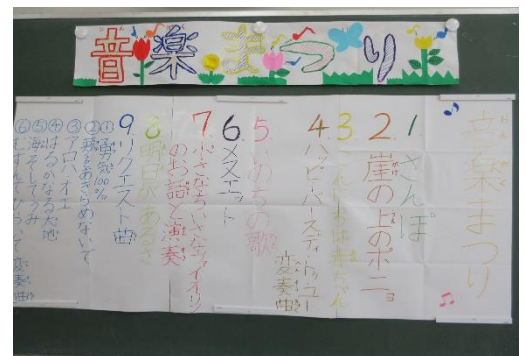 音楽まつり
音楽まつり
1 さんぽ
2. 崖の上のポニョ
3 こんにちは赤ちゃん
4. ハッピーバースディトゥユー
変奏曲
5. いのちの歌
6. メヌエット
7. 小さなちいさなヴァイオリン
のお話と演奏
8 明日があるさ
9. リクエスト曲
①勇気100%
②夢をあきらめないで
③アロハ・オエ
④はるかなる大地
⑤海
⑥むすんでひらいて 変奏曲